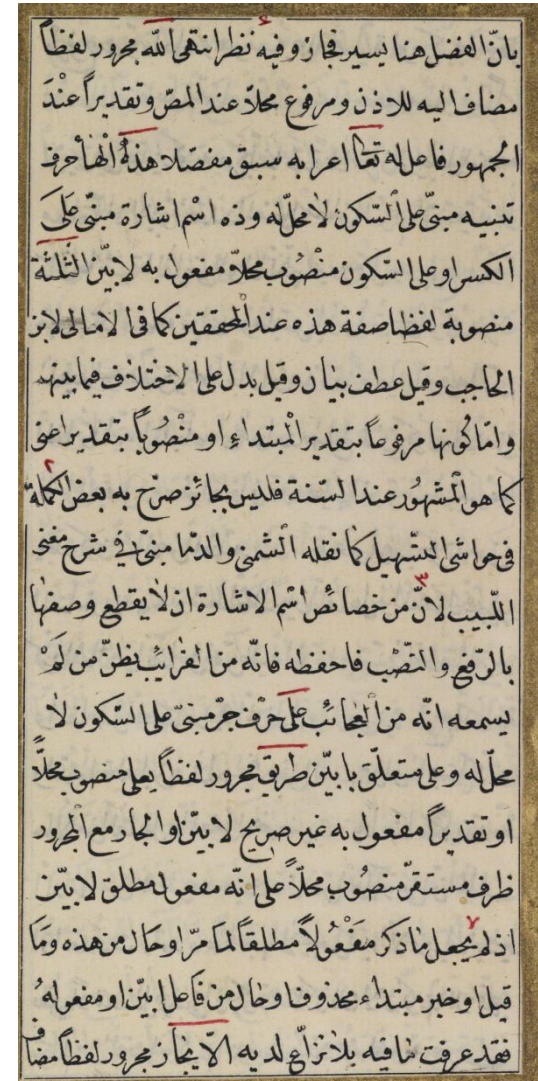 بانّ الفضل هنا يسير فجاز وفيه نظر انتهى الله مجرور لفظاً
مضاف اليه للاذن ومرفوع محلاّ عند المصّ وتقديراً عنْدَ
الجمهور فاعل له تعا اعرابه سبق مفصّلا هذهُ الْهَأحرف
تنبيه مبنىّ على السّكون لا محلّ له وذه اسْم اشارة مبنىّ عَلَى
الكسر او على السّكون منْصُوب محلاّ مفعول به لابيّن الثلثة
منصوبة لفظا صفة هذه عند المحققين كما فى الامالى لابن
الحاجب وقيل عطف بيان وقيل بدل على الاختلاف فيما بينهم
وامّا كونها مرفوعاً بتقدير الْمبتداءِ او منْصُوباً بتقدير اعنى
كما هو الْمشهُور عند السنة فليس بجائز صرّح به بعض الكملة
فى حواشى التسّهيل كما نقله الشمنى والدّمامينىّ فى شرح مغنى
اللّبيب لانّ من خصائص اسْم الاشارة ان لا يقطع وصفها
بالرّفع والنّصْب فاحفظه فانّه من الغرائب يظنّ من لَمْ
يسمعه انّه من العجائب على حرْف جرّ مبنىّ على السّكون لا
محلّ له وعلى متعلّق بابيّن طريق مجرور لفظاً بعلى منصوب محلاًّ
او تقديراً مفعول به غير صريح لابيّن او الجار مع الْمجرور
ظرف مستقرّ منصُوب محلاًّ على انّه مفعول مطلق لابيّن
اذ لم يجعل ما ذكر مَفْعُولاً مطلقاً لما مرّ او حال من هذه وَمَا
قيل او خبر مبتداء محذوف او حال من فَاعل ابيّن او مفعوله
فقد عرفت ما فيه بلا نزاع لديه الايجاز مجرور لفظاً مضاف